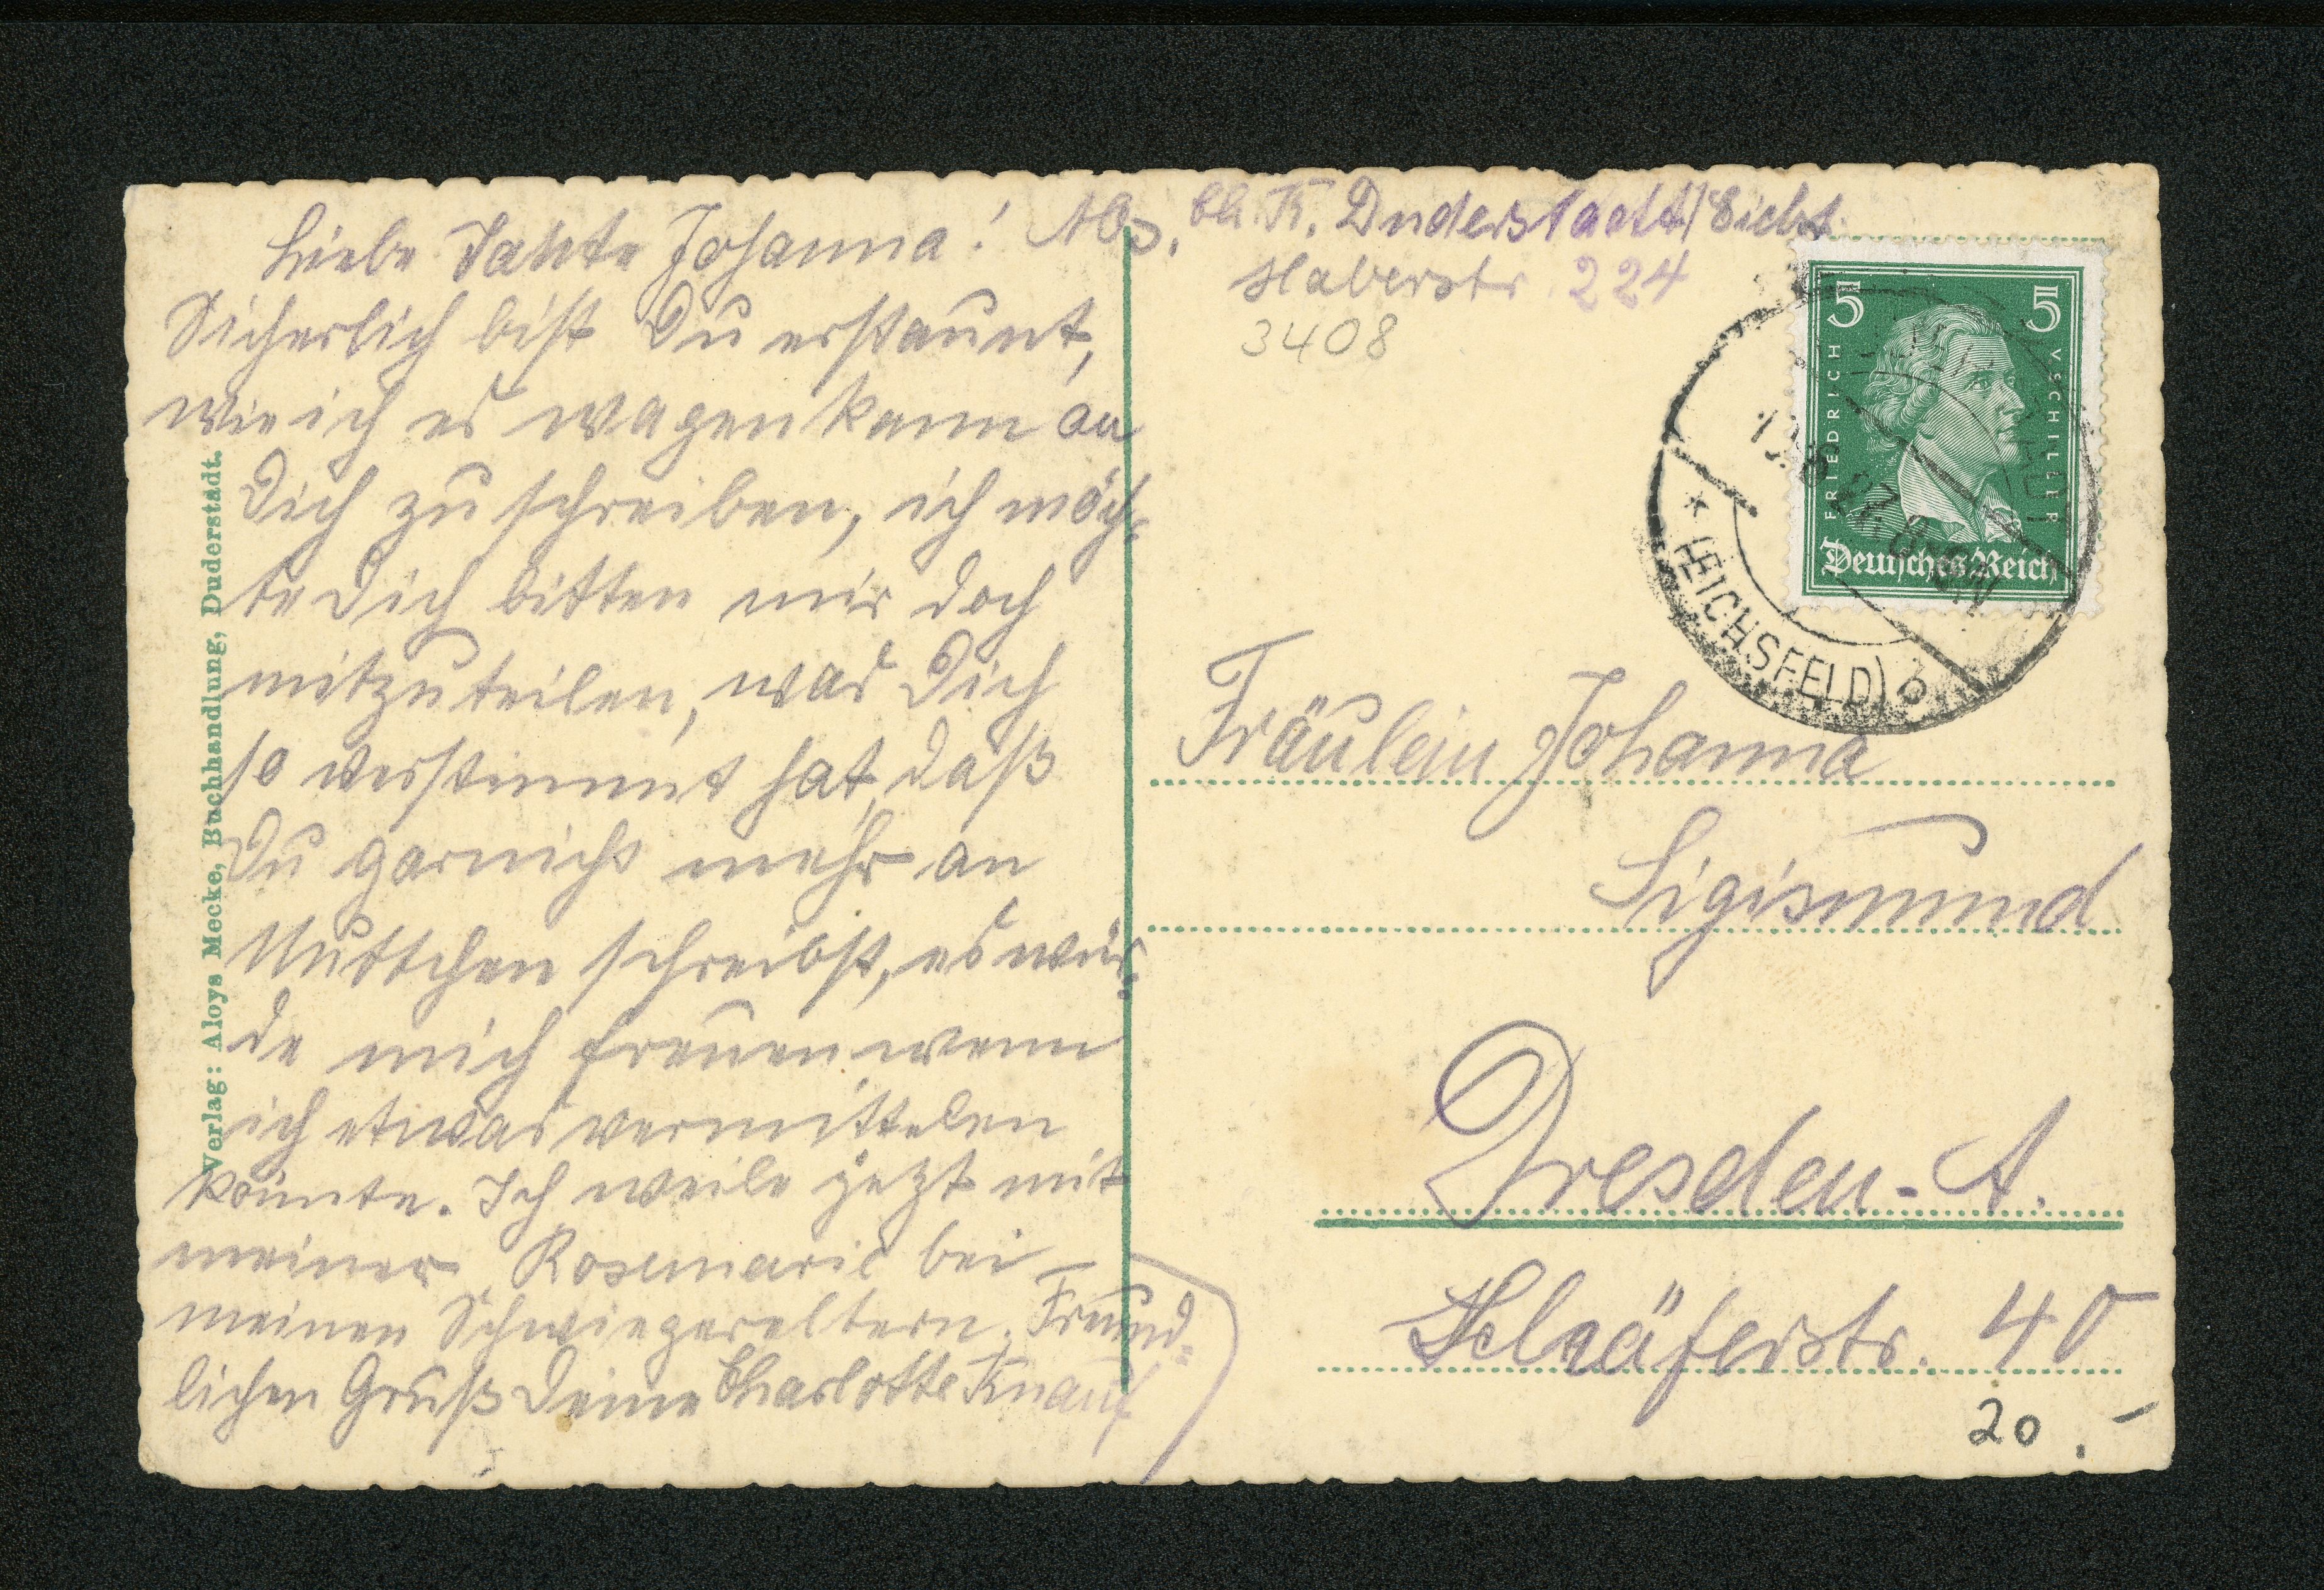 Liebe Tante Johanna!
Sicherlich bist Du erstaunt,
wie ich es wagen kann an
Dich zu schreiben, ich möch-
te Dich bitten mir doch
mitzuteilen, was Dich
so verstimmt hat, daß
Du garnicht mehr an
Muttchen schreibst, es wür-
de mich freuen, wenn
ich etwas vermittelen
könnte. Ich weile jetzt mit
meiner Rosemarie bei
meinen Schwiegereltern. Freund-
lichen Gruß Deine Charlotte Knauf
Verlag: Aloys Mecke, Buchhandlung, Duderstadt.
Abs. Ch. K. Duderstadt/Eichsf.
Haberstr. 224
3408
5 5
FRIEDRICH V. SCHILLER
Deutsches Reich
* (EICHSFELD) b
Fräulein Johanna
Sigismund
Dresden-A.
Schäferstr. 40
20.-